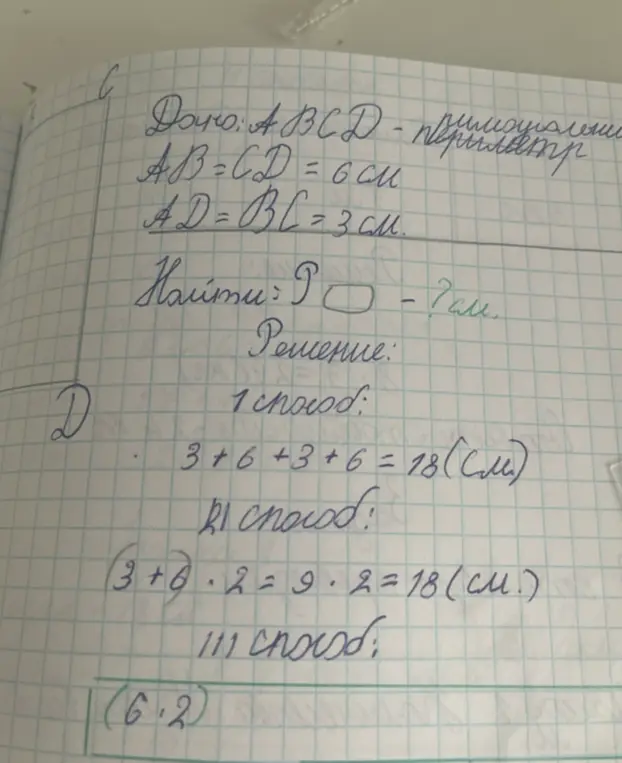 C
Дано: ABCD -
периметр
AB = CD = 6 см
AD = BC = 3 см.
Найти: P ▭ - ? см.
Решение:
D
I способ:
3 + 6 + 3 + 6 = 18 (см.)
II способ:
(3 + 6) · 2 = 9 · 2 = 18 (см.)
III способ:
(6 · 2)